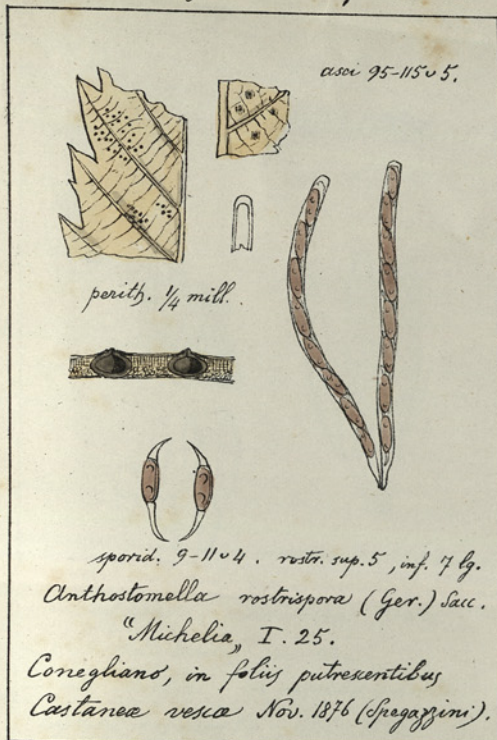 asci 95-115 υ 5.
perith. 1/4 mill.
sporid. 9-11 υ 4. rostr. sup. 5, inf. 7 lg.
Anthostomella rostrispora (Ger.) Sacc.
"Michelia„ I. 25.
Conegliano, in foliis putrescentibus
Castaneæ vescæ Nov. 1876 (Spegazzini).